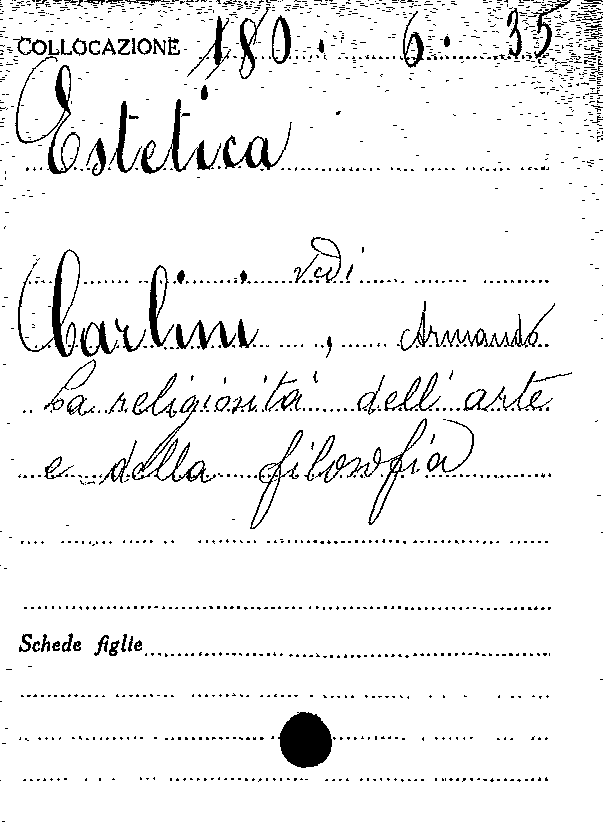 COLLOCAZIONE 180. 6. 35
Estetica
vedi
Carlini, Armando
La religiosita' dell'arte
e della filosofia
Schede figlie